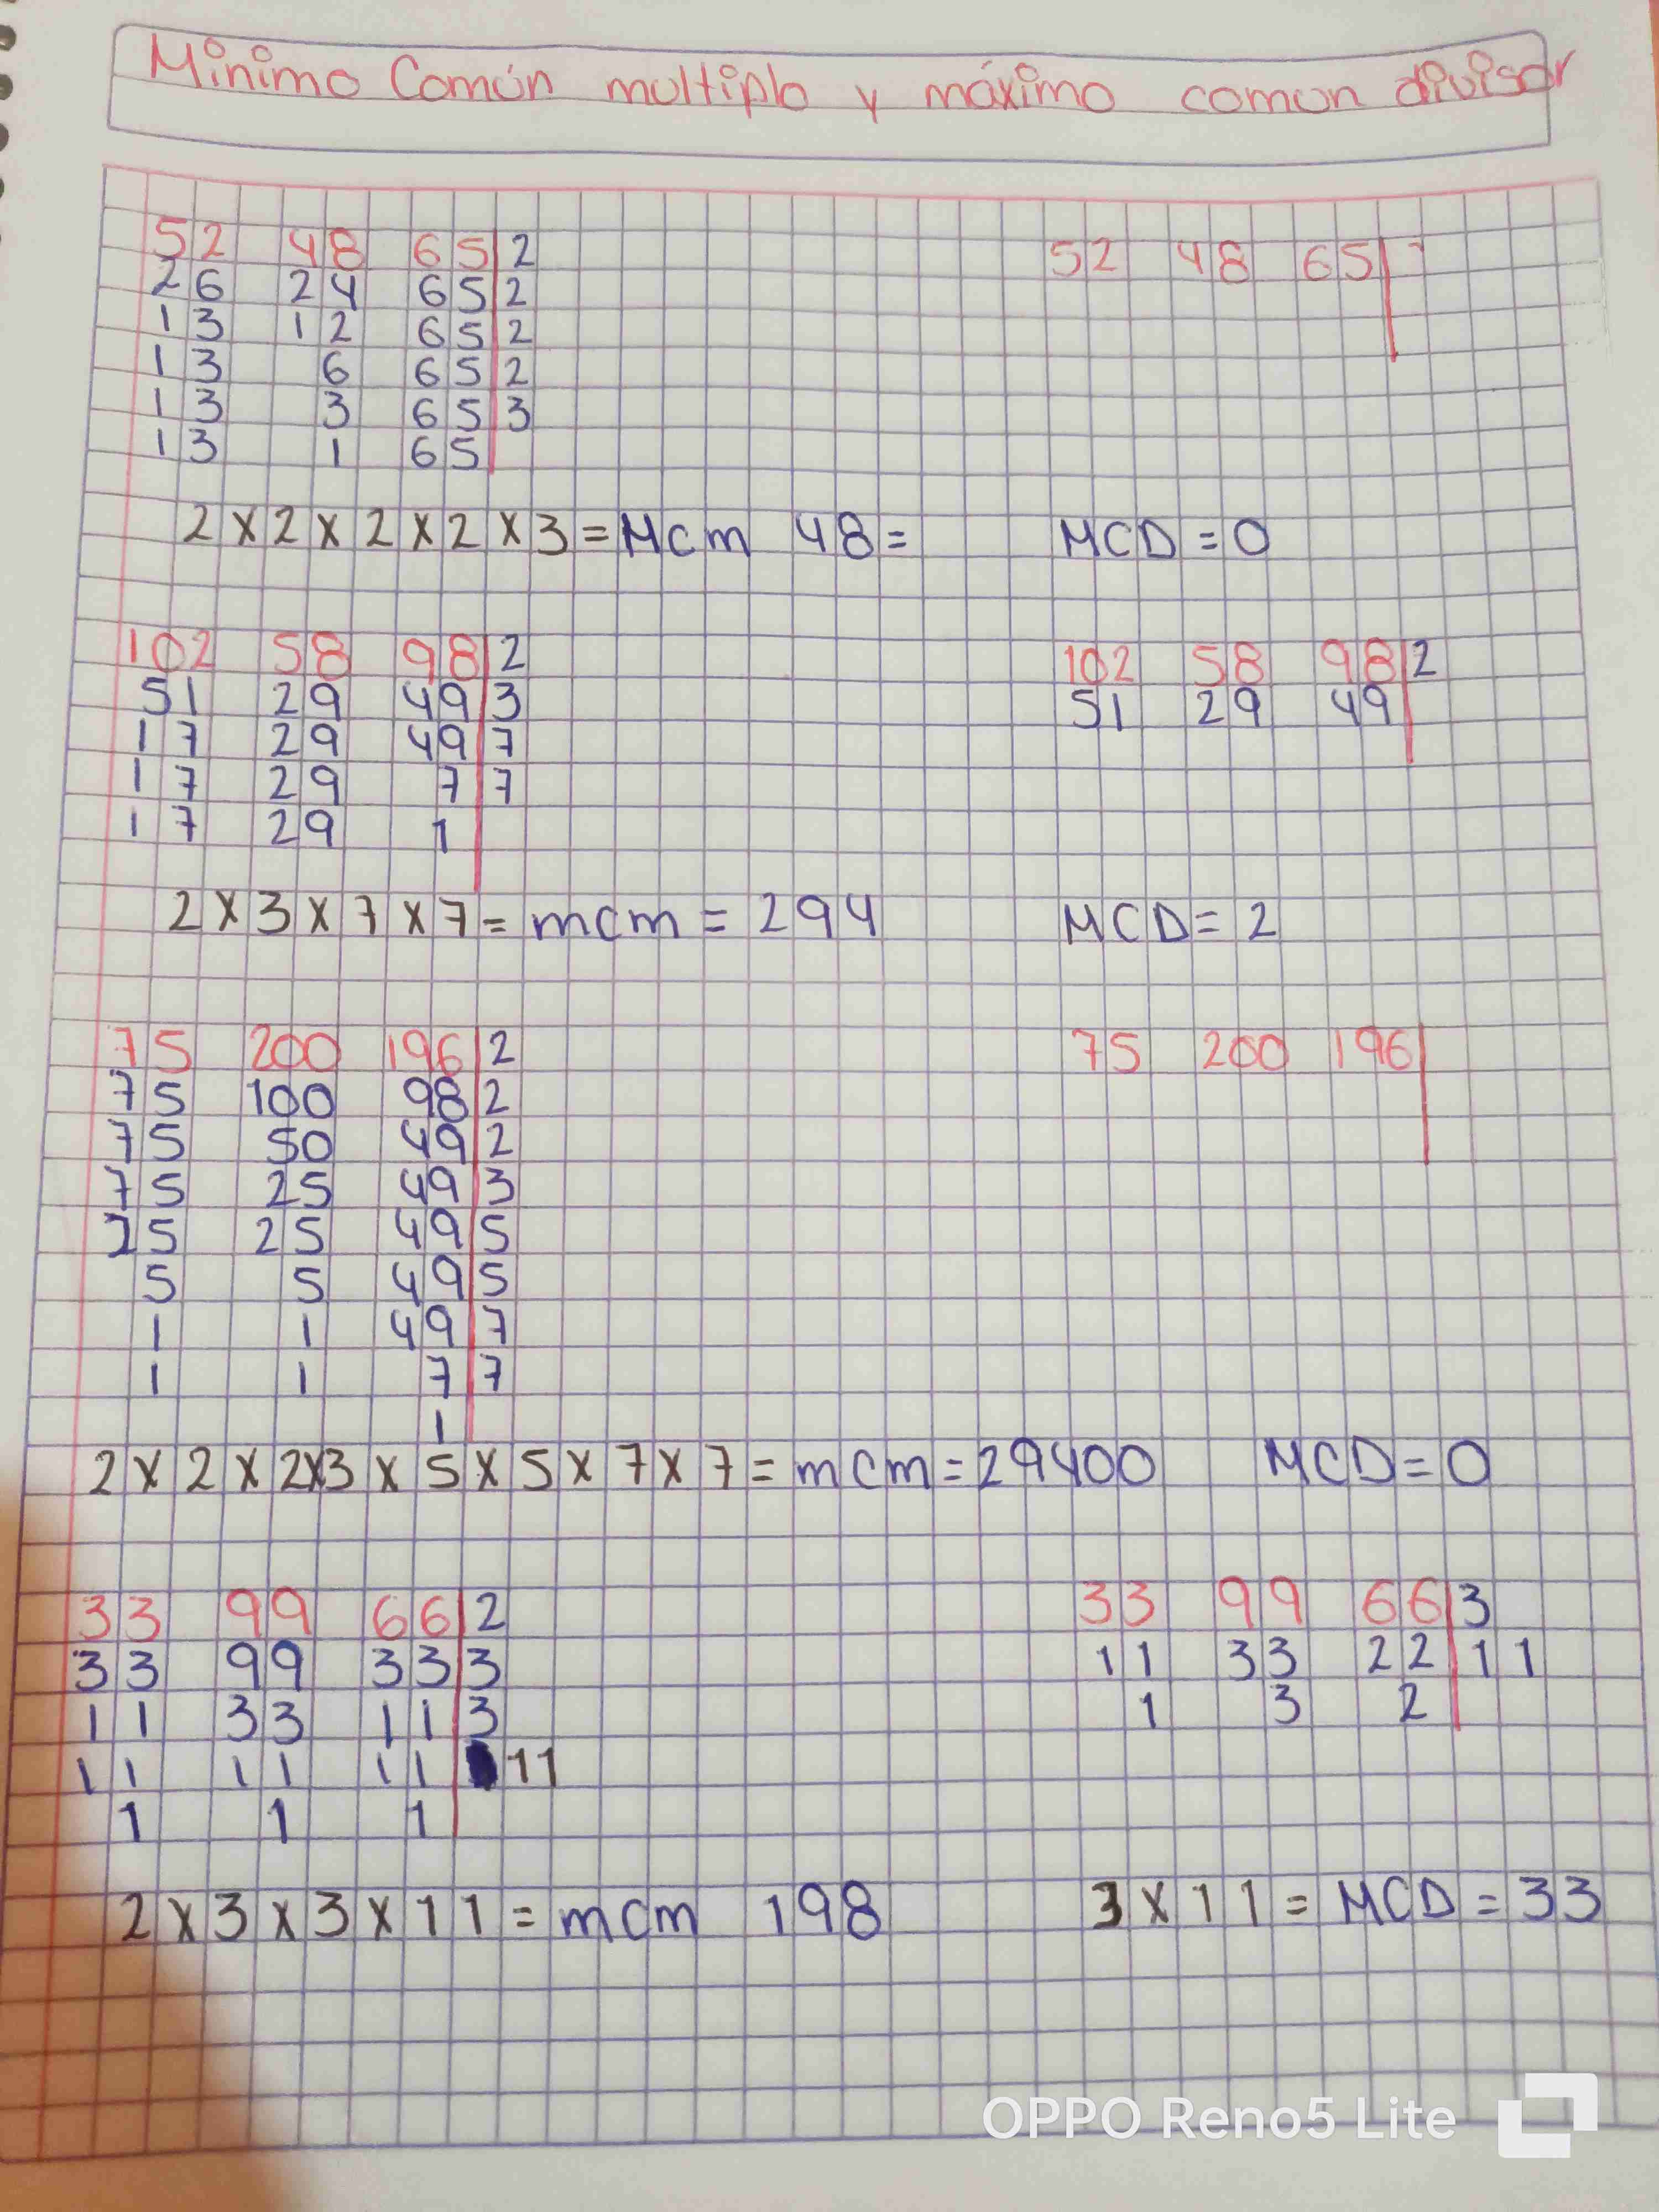 Minimo Común multiplo y máximo comun divisor
52 48 65 2
26 24 65 2
13 12 65 2
13 6 65 2
13 3 65 3
13 1 65
2 x 2 x 2 x 2 x 3 = Mcm 48 =
52 48 65
MCD = 0
102 58 98 2
51 29 49 3
17 29 49 7
17 29 7 7
17 29 1
2 x 3 x 7 x 7 = mcm = 294
102 58 98 2
51 29 49
MCD = 2
75 200 196 2
75 100 98 2
75 50 49 2
75 25 49 3
25 25 49 5
5 5 49 5
1 1 49 7
1 1 7 7
1
2 x 2 x 2x3 x 5 x 5 x 7 x 7 = mcm = 29400
75 200 196
MCD = 0
33 99 66 2
33 99 33 3
11 33 11 3
11 11 11 11
1 1 1
2 x 3 x 3 x 11 = mcm 198
33 99 66 3
11 33 22 11
1 3 2
3 x 11 = MCD = 33
OPPO Reno5 Lite